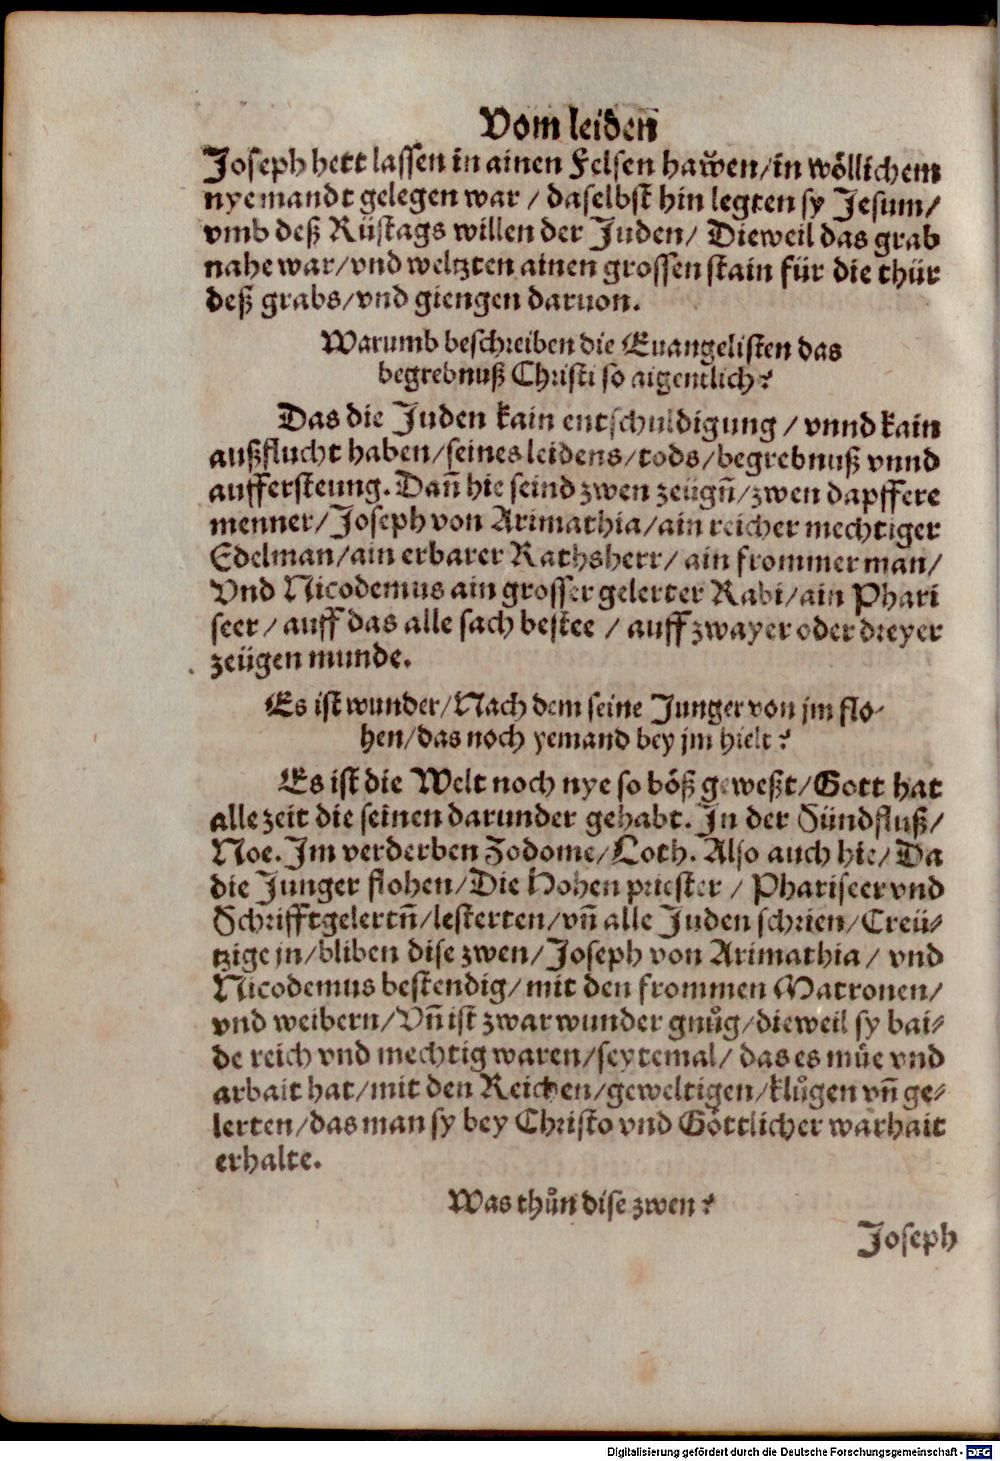 Vom leiden
Joseph hett lassen in ainen Felsen haẘen/in wöllichem
nyemandt gelegen war / daselbst hin legten sy Jesum/
vmb deß Rüstags willen der Juden/ Dieweil das grab
nahe war/vnd weltzten ainen grossen stain für die thür
deß grabs/vnd giengen daruon.
Warumb beschreiben die Euangelisten das
begrebnuß Christi so aigentlich?
Das die Juden kain entschuldigung / vnnd kain
außflucht haben/seines leidens/tods/begrebnuß vnnd
auffersteung. Dañ hie seind zwen zeügñ/zwen dapffere
menner/Joseph von Arimathia/ain reicher mechtiger
Edelman/ain erbarer Rathsherr/ ain frommer man/
Vnd Nicodemus ain grosser gelerter Rabi/ain Phari
seer / auff das alle sach bestee / auff zwayer oder dreyer
zeügen munde.
Es ist wunder/Nach dem seine Junger von jm flo-
hen/das noch yemand bey jm hielt?
Es ist die Welt noch nye so böß geweßt/Gott hat
alle zeit die seinen darunder gehabt. In der Sündfluß/
Noe. Im verderben Zodome/Loth. Also auch hie/ Da
die Junger flohen/Die Hohen priester / Phariseer vnd
Schrifftgelertñ/lesterten/vñ alle Juden schrien/Creü-
tzige jn/bliben dise zwen/Joseph von Arimathia / vnd
Nicodemus bestendig/mit den frommen Matronen/
vnd weibern/Vñ ist zwar wunder gnůg/dieweil sy bai-
de reich vnd mechtig waren/seytemal/ das es müe vnd
arbait hat/mit den Reichen/geweltigen/klůgen vñ ge-
lerten/das man sy bey Christo vnd Göttlicher warhait
erhalte.
Was thůn dise zwen?
Joseph
Digitalisierung gefördert durch die Deutsche Forschungsgemeinschaft - DFG